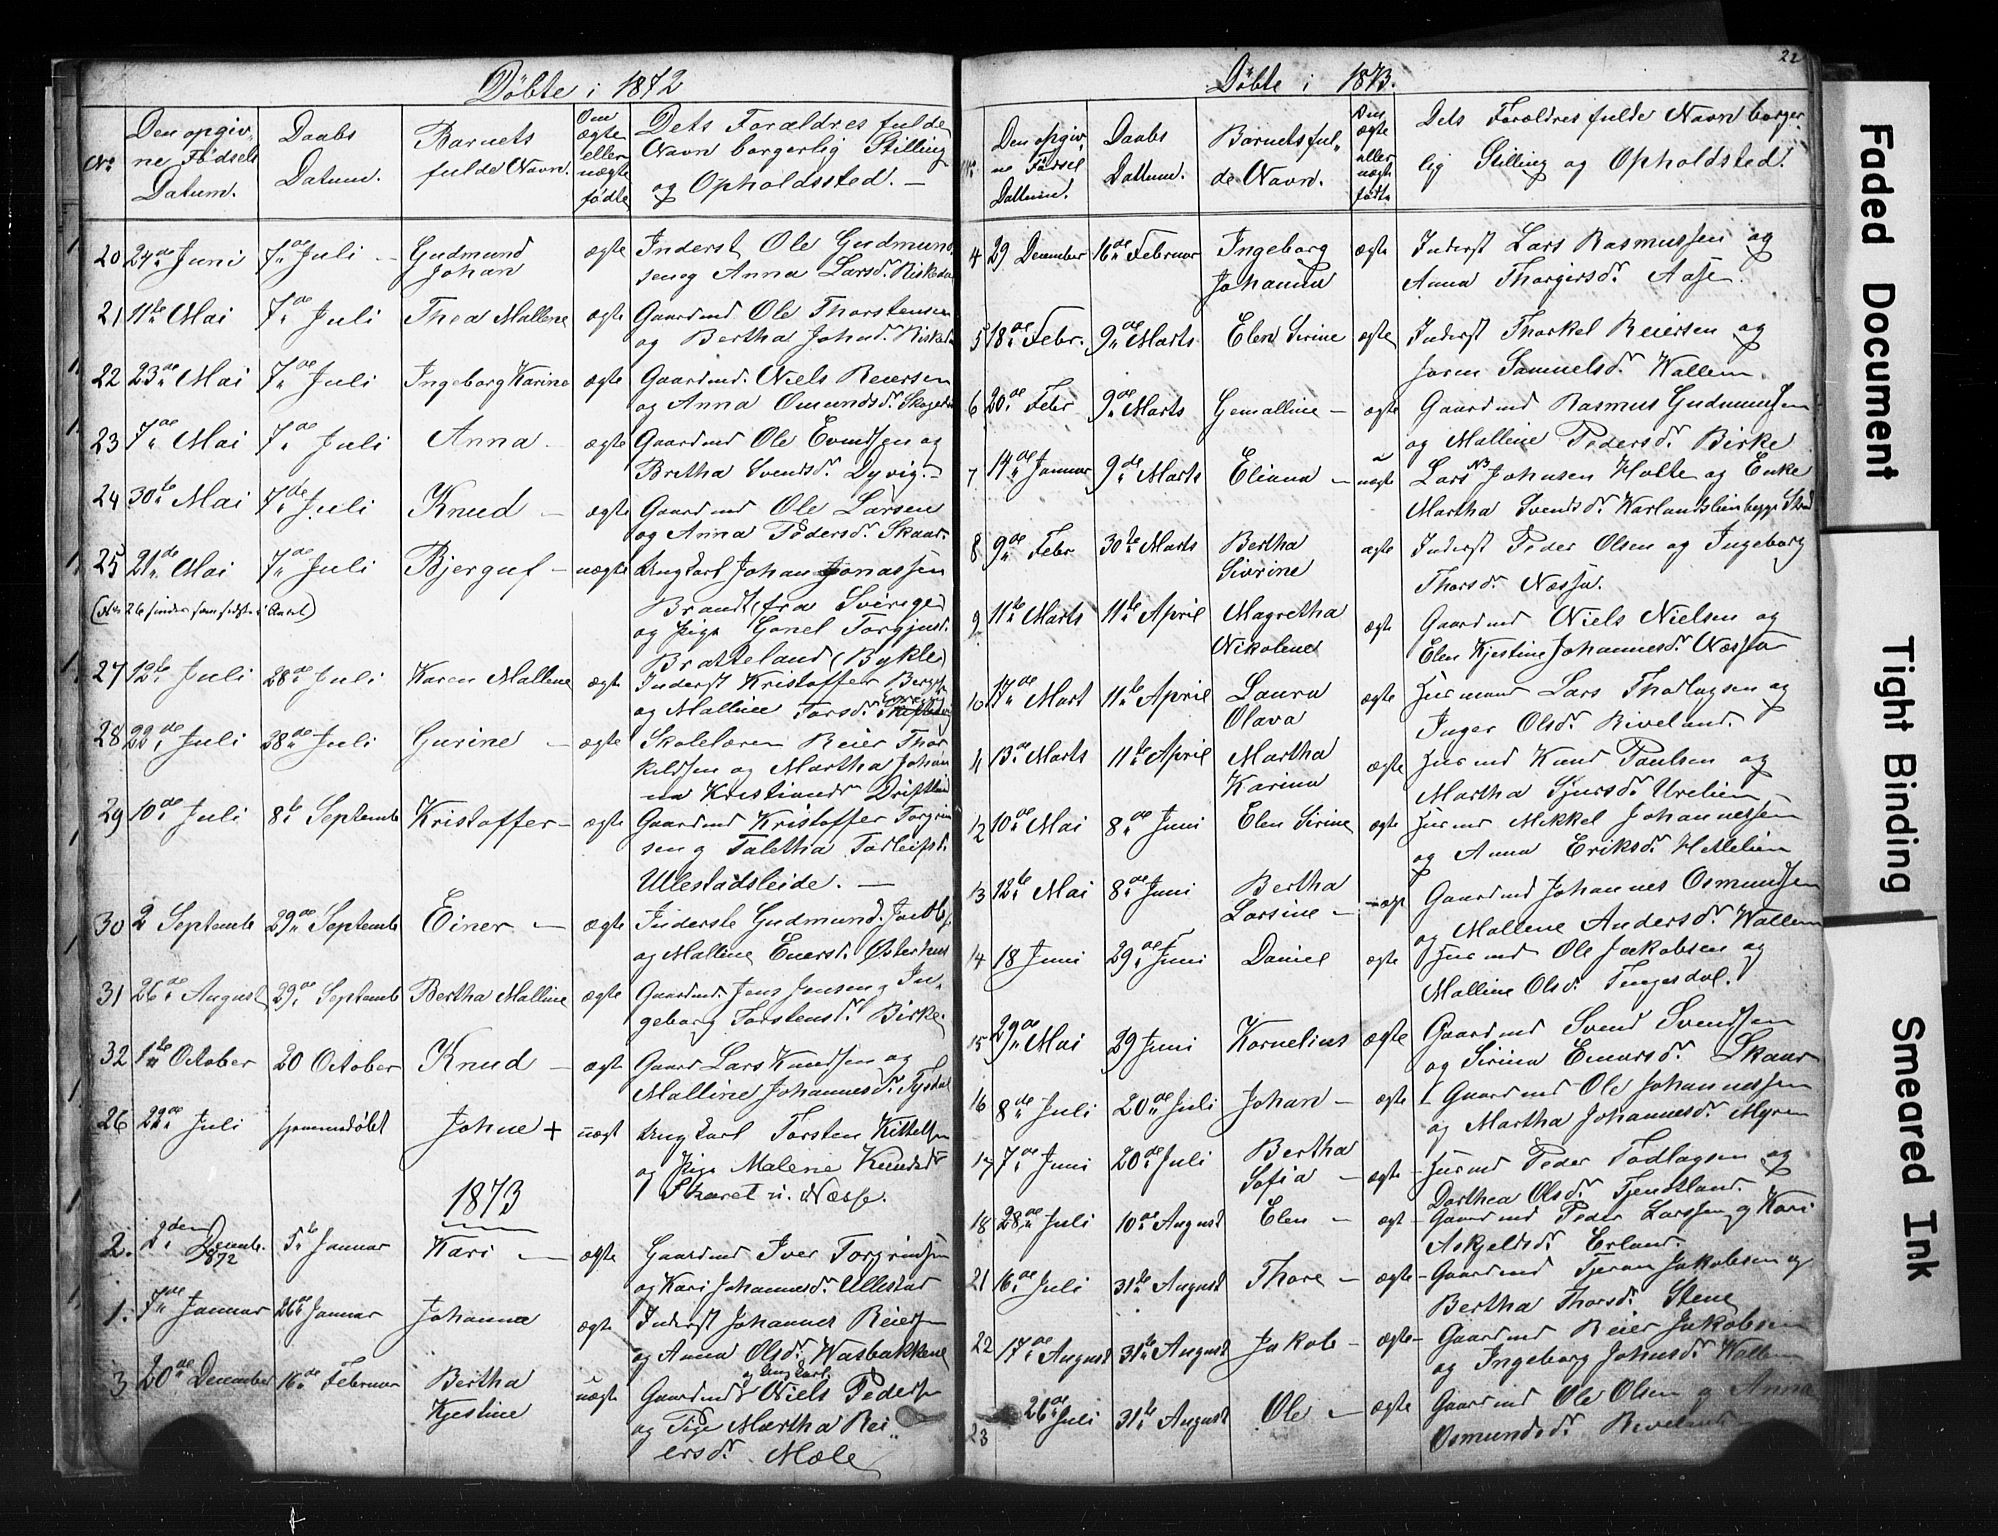 Döbte i 1872
No
Den opgiv-
ne Födsels
Datum.
Daabs
Datum.
Barnets
fulde Navn.
Om
ægte
eller
uægte
födte
Dets Forældres fulde
Navn borgerlig Stilling
og Opholdssted. —
20 24de Juni 7de Juli – Gudmund ægte Inderst Ole Gudmund-
Johan sen og Anna Larsd. Riskedal
21 11te Mai 7de Juli Thea Mallene ægte Gaardmd Ole Thorstensen
og Bertha Johnsd. Riskedal
22 23de Mai 7de Juli Ingeborg Karine ægte Gaardmd. Niels Reiersen
og Anna Omundsd.
23 7de Mai 7de Juli Anna – ægte Gaardmd Ole Evindsen og
Bretha Svendsd. Dyvig. –
24 30te Mai 7de Juli Knud – ægte Gaardmd Ole Larsen
og Anna Pedersd. Skaar.
25 21de Mai 7de Juli Bjerguf – uægte Ungkarl Johan Jonassen
(No 26 findes som sidste i Aaret) Brandt (fra Sverige)
og Pige Gonel Torgjusd.
Bratteland (Bykle)
27 12te Juli 28de Juli Karen Mallene ægte Inderst Kristoffer
og Malline Torsd.
28 22de Juli 28de Juli Gurine – ægte Skolelæren Reier Thor-
kildsen og Martha Johan-
na Kristiansd.
29 10de Juli 8de Septemb Kristoffer – ægte Gaardmd Kristoffer Torgrim-
sen og Taletha Todleifsd.
Ullestadsleide. —
30 2 Septemb 29de Septemb Einer – ægte Inderste Gudmund
og Malline Enersd. Østerhus
31 26de August 29de Septemb Bertha Malline ægte Gaardmd. Jens Jensen og In-
geborg Torstensd. Birke.
32 1te October 20 October Knud – ægte Gaard Lars Knudsen og
Malline Johannesd. Tysdal
26 22de Juli hjemmedöbt Johne + uægt Ungkarl Torsten Kittelsen
og Pige Malene Knudsdr
Skaret u. Næsse.
1873
2. 2den Decemb. 1872 5te Januar Kari – ægte Gaardmd Iver Torgrimsen
og Kari Johannesd. Ullestad
1. 7de Januar 26de Januar Johanna ægte Inderst Johannes Reiersen
og Anna Olsd. Wasbakkene
3 20de December 16de Februar Bertha uægte Gaardmd og Ungkarl Niels Pedersen
Kjestine og Pige Martha Rei-
ersdr. Mæle
22
Döbte i 1873.
No.
Den opgiv-
ne Födsel
Dattum.
Daabs
Dattum.
Barnets ful-
de Navn.
Om
ægte
eller
uægte
födte
Dets Forældres fulde Navn borger-
lig Stilling og Opholdsted.
4 29 December 16de Februar Ingeborg ægte Inderst Lars Rasmussen og
Johanna Anna Thorgersd. Aase.
5 18de Febr. 9de Marts Elen Sirine ægte Inderst Thorkel Reiersen og
Soren Samuelsd. Wallem.
6 20de Febr 9de Marts Gemalline – ægte Gaardmd Rasmus Gudmundsen
og Malline Pedersd. Birke
7 14de Januar 9de Marts Eliana – uægte Lars Johnsen Holte og Enke
Martha Svendsd.
8 9de Febr 30te Marts Bertha ægte Inderst Peder Olsen og Ingeborg
Sivrine Thorsd. Næssa.
9 11te Marts 11te April Magretha ægte Gaardmd Niels Nielsen og
Nikolene Elen Kjestine Johannesd. Næssa
10 17de Mart 11te April Laura ægte Husmand Lars Thodlagsen og
Olava Inger Olsdr. Riveland.
11 13de Marts 11te April Martha ægte Husmd Knud Paulsen og
Karina Martha Sjursdr. Urelien –
12 10de Mai 8de Juni Elen Sirine ægte Husmd Mikkel Johannessen
og Anna Eriksd. Hettelien
13 12te Mai 8de Juni Bertha ægt Gaardmd Johannes Osmundsen
Larsine – og Mallene Andersdr. Wallem
14 18 Juni 29de Juni Daniel ægte Husmd Ole Jakobsen og
Malline Olsd. Tingsdal.
15 29de Mai 29 Juni Kornelius ægte Gaardmd Svend Svendsen
og Sirina Enarsdr. Skaar
16 8de Juli 20de Juli Johan – ægte Gaardmd Ole Johannessen
og Martha Johannesdr. Myren
17 7de Juni 20de Juli Bertha ægte – Husmd Peder Todlagsen og
Sofia – Dorthea Olsd. Tjentland.
18 28de Juli 10de August Elen – ægt – Gaardmd Peder Larssen og Kari
Askjeldsd. Erland.
21 6te Juli 31te August Thore – ægte – Gaardmd Tjeran Jakobsen og
Bertha Thorsd. Stene
22 17de August 31te August Jakob – ægte – Gaardmd Reier Jakobsen
og Ingeborg Johnsdr. Wallem
23 26de Juli 31te August Ole – ægte Gaardmd Ole Olsen og Anna
Osmundsdr. Riveland
Faded Document
Tight Binding
Smeared Ink